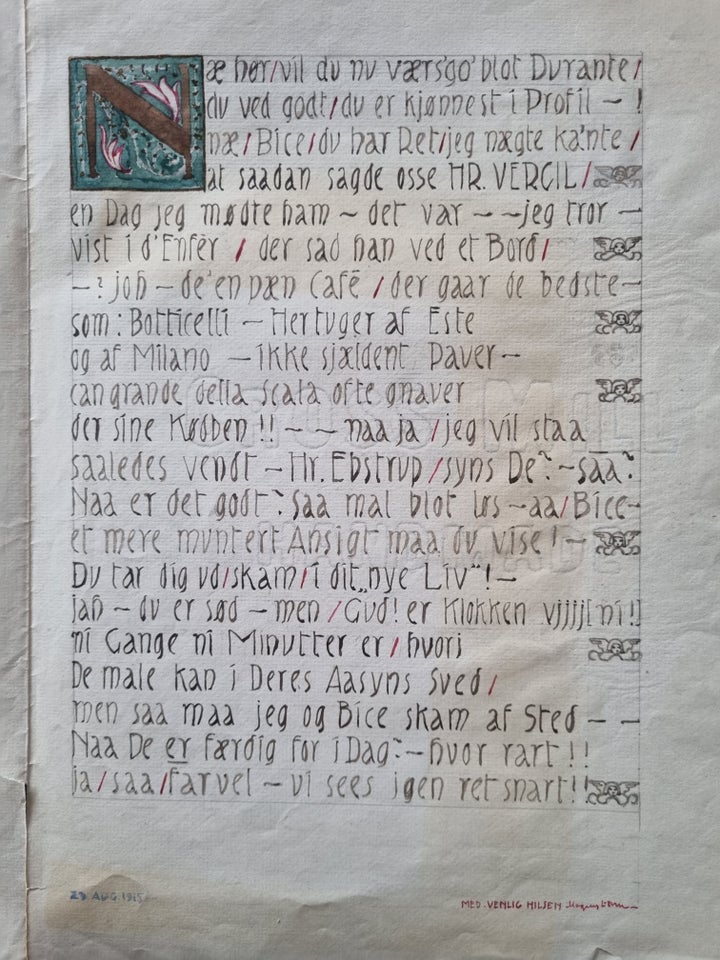 Næ hør/vil du nu værs'go' blot Durante/
du ved godt/du er kjønnest i Profil – !
næ/Bice/du har Ret/jeg nægte ka'nte/
at saadan sagde osse HR. VERGIL/
en Dag jeg mødte ham – det var – – jeg tror –
vist i d'Enfèr / der sad han ved et Bord/
– ? joh – de'en pæn Café / der gaar de bedste –
som: Botticelli – Hertuger af Este
og af Milano – ikke sjældent Paver –
Cangrande della Scala ofte gnaver
der sine Kødben !! – – naa ja / jeg vil staa
saaledes vendt – Hr. Ebstrup / syns De? – saa?
Naa er det godt? Saa mal blot løs – aa/Bice –
et mere muntert Ansigt maa du vise! –
Du tar dig ud/skam/i dit „nye Liv"! –
jah – du er sød – men / Gud! er Klokken vjjjj[ni!]
ni Gange ni Minutter er / hvori
De male kan i Deres Aasyns Sved/
men saa maa jeg og Bice skam af Sted – –
Naa De er færdig for i Dag? – hvor rart !!
ja/saa/farvel – vi sees igen ret snart!!
29 AUG. 1915
MED VENLIG HILSEN